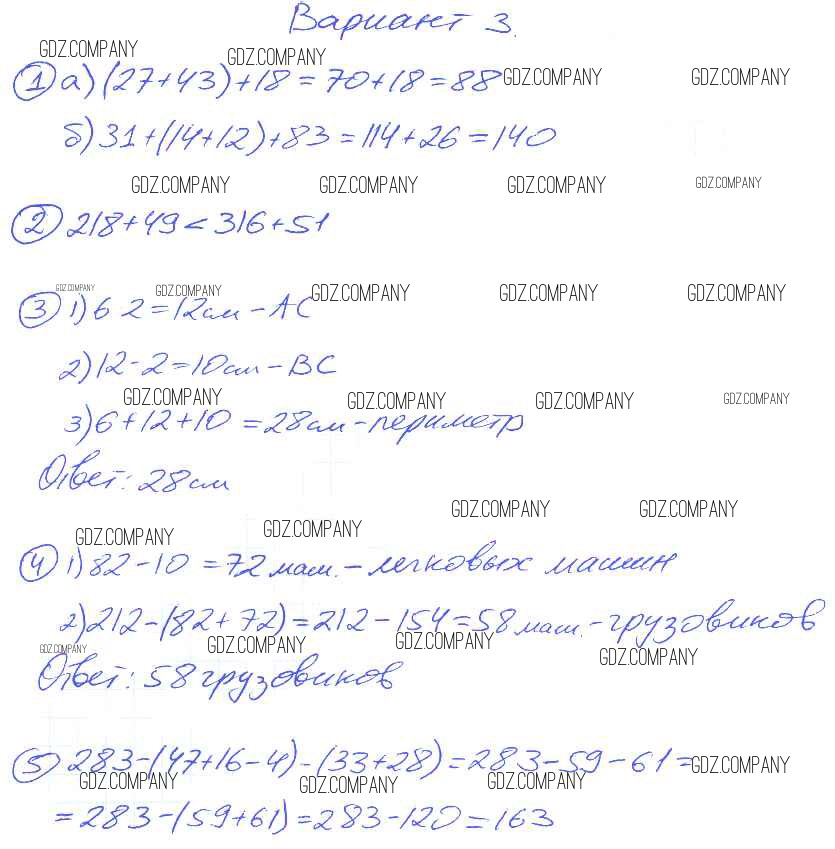 Вариант 3.
GDZ.COMPANY GDZ.COMPANY
1 а) (27+43)+18=70+18=88 GDZ.COMPANY GDZ.COMPANY
б) 31+(14+12)+83=114+26=140
GDZ.COMPANY GDZ.COMPANY GDZ.COMPANY GDZ.COMPANY
2 218+49<316+51
GDZ.COMPANY GDZ.COMPANY GDZ.COMPANY GDZ.COMPANY GDZ.COMPANY
3 1) 6 2=12см-АС
2) 12-2=10см-ВС
GDZ.COMPANY GDZ.COMPANY GDZ.COMPANY GDZ.COMPANY
3) 6+12+10=28см-периметр
Ответ: 28см
GDZ.COMPANY GDZ.COMPANY
GDZ.COMPANY GDZ.COMPANY
4 1) 82-10=72маш.-легковых машин
2) 212-(82+72)=212-154=58маш.-грузовиков
GDZ.COMPANY GDZ.COMPANY GDZ.COMPANY GDZ.COMPANY
Ответ: 58грузовиков
5 283-(47+16-4)-(33+28)=283-59-61= GDZ.COMPANY
GDZ.COMPANY GDZ.COMPANY GDZ.COMPANY
=283-(59+61)=283-120=163